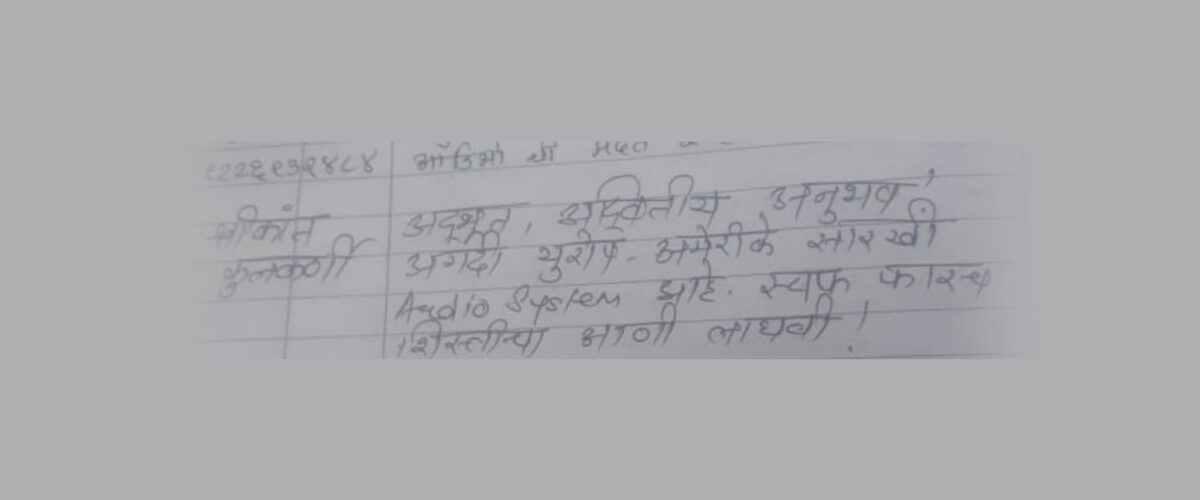 ऑडिओ ची मदत
श्रीकांत अद्भूत, अद्वितीय अनुभव!
कुलकर्णी अगदी युरोप-अमेरीके सारखी
Audio System आहे. स्टाफ फारच
शिस्तीचा आणी लाघवी!